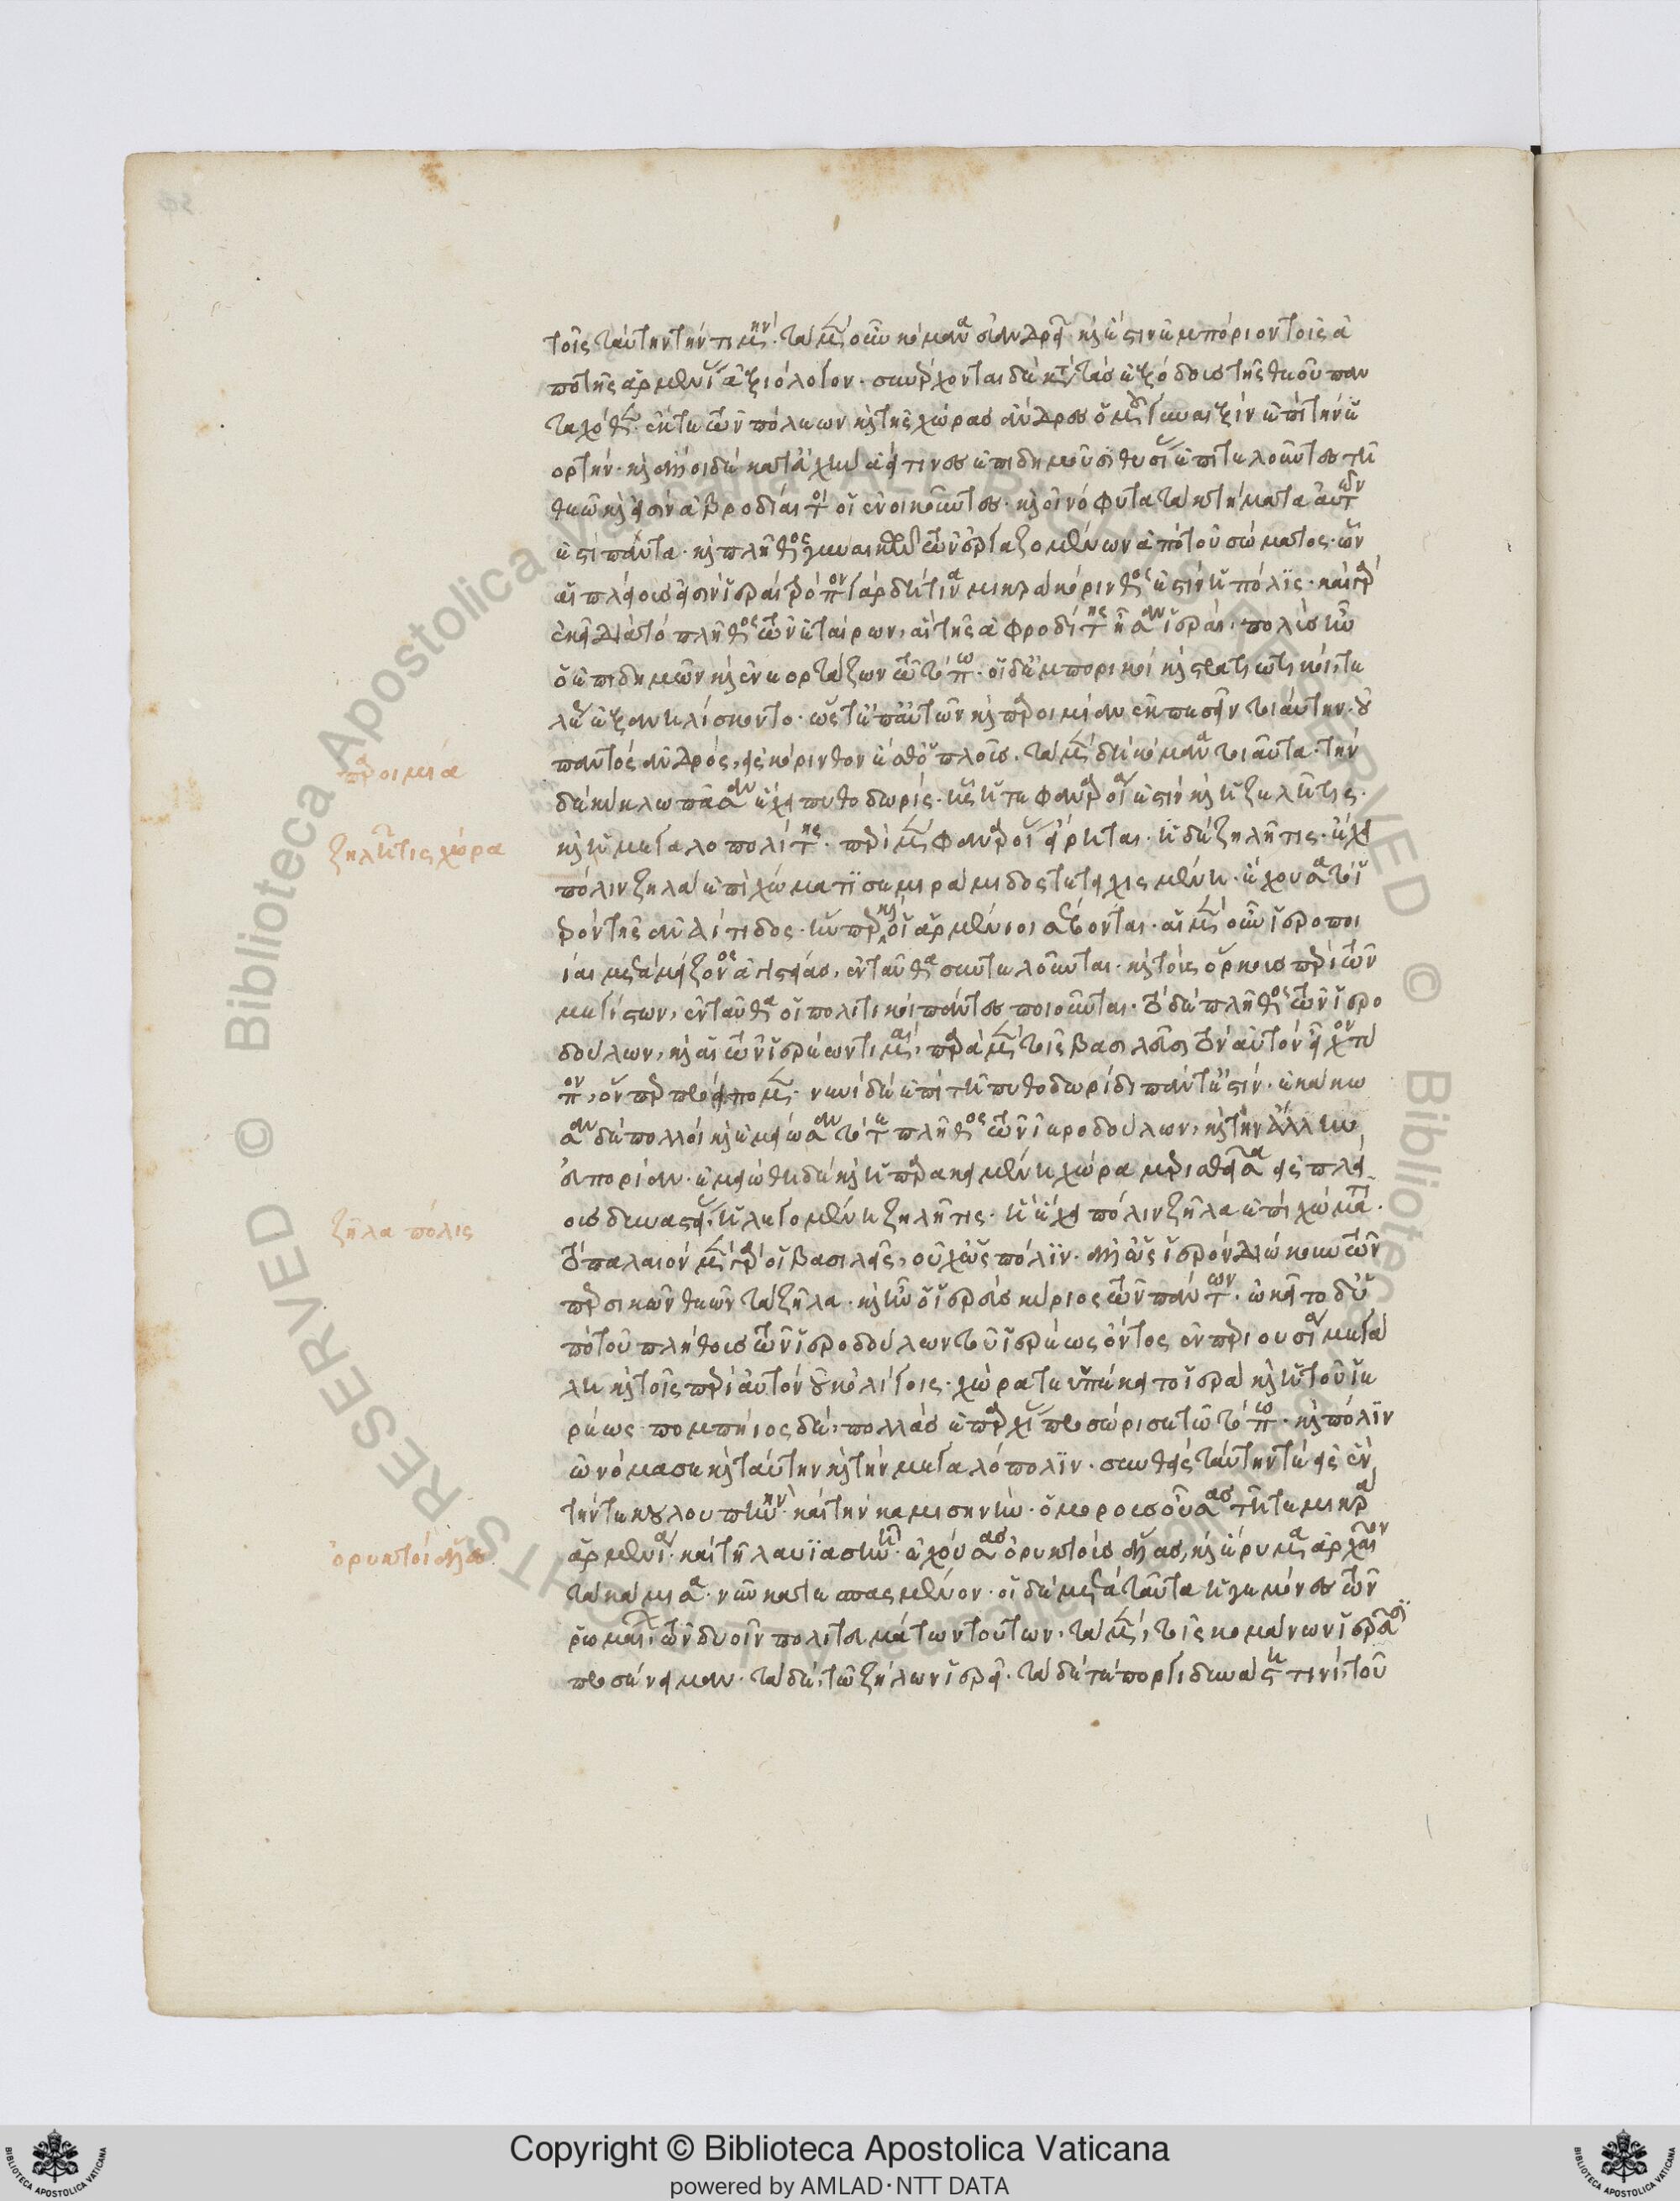 τοῖς ταύτην τὴν τιμήν. τὰ μὲν οὖν κόμανα εὐανδρεῖ. καὶ ἔστιν ἐμπόριον τοῖς ἀ
πὸ τῆς ἀρμενίας ἀξιόλογον. συνέρχονται δὲ κατὰ τὰς ἐξόδους τῆς θεοῦ παν
ταχόθεν ἔκ τε τῶν πόλεων καὶ τῆς χώρας ἄνδρες ὁμοῦ γυναιξὶν ἐπὶ τὴν ἑ
ορτήν. καὶ ἄλλοι δὲ κατ' εὐχὴν ἀεί τινες ἐπιδημοῦσι θυσίας ἐπιτελοῦντες τῇ
θεῷ καὶ εἰσὶν ἁβροδίαιτοι οἱ ἐνοικοῦντες. καὶ οἰνόφυτα τὰ κτήματα αὐτῶν
ἐστὶ πάντα. καὶ πλῆθος γυναικῶν τῶν ἐργαζομένων ἀπὸ τοῦ σώματος. ὧν
αἱ πλείους εἰσὶν ἱεραί. τρόπον γὰρ δή τινα μικρὰ κόρινθός ἐστιν ἡ πόλις. καὶ γὰρ
ἐκεῖ διὰ τὸ πλῆθος τῶν ἑταίρων, αἳ τῆς ἀφροδίτης ἦσαν ἱεραί. πολὺς ἦν
ὁ ἐπιδημῶν καὶ ἐνεορτάζων τῷ τόπῳ. οἱ δ' ἐμπορικοὶ καὶ στρατιωτικοὶ τε
λέως ἐξανηλίσκοντο. ὥστ' ἐπ' αὐτῶν καὶ παροιμίαν ἐκπεσεῖν τοιαύτην. οὐ
παντὸς ἀνδρὸς, εἰς κόρινθον ἔσθ' ὁ πλοῦς. τὰ μὲν δὴ κόμανα τοιαῦτα. τὴν
δὲ κύκλῳ πᾶσαν ἔχει πυθοδωρίς. ἧς ἥ τε φανάροιά ἐστιν καὶ ἡ ζηλῆτις.
καὶ ἡ μεγαλοπολῖτις. περὶ μὲν φαναροίας εἴρηται. ἡ δὲ ζηλῆτις. ἔχει
πόλιν ζῆλα ἐπὶ χώματι σεμιράμιδος τετειχισμένη. ἔχουσα τὸ ἱε
ρὸν τῆς ἀναίτιδος. ἥνπερ καὶ οἱ ἀρμένιοι σέβονται. αἱ μὲν οὖν ἱεροποι
ίαι μετὰ μείζονος ἁγιστείας, ἐνταῦθα συντελοῦνται. καὶ τοὺς ὅρκους περὶ τῶν
μεγίστων, ἐνταῦθα οἱ πολιτικοὶ πάντες ποιοῦνται. τὸ δὲ πλῆθος τῶν ἱερο
δούλων, καὶ αἱ τῶν ἱερέων τιμαὶ, παρὰ μὲν τοῖς βασιλεῦσι τὸν αὐτὸν εἶχον τύ
πον, ὃν προείπομεν. νυνὶ δὲ ἐπὶ τῇ πυθοδωρίδι πάντ' ἐστίν. ἐκάκω
σαν δὲ πολλοὶ καὶ ἐμείωσαν τό τε πλῆθος τῶν ἱεροδούλων, καὶ τὴν ἄλλην
εὐπορίαν. ἐμειώθη δὲ καὶ ἡ παρακειμένη χώρα μερισθεῖσα εἰς πλεί
ους δυναστείας. ἡ λεγομένη ζηλῆτις. ἡ ἔχει πόλιν ζῆλα ἐπὶ χώματι.
τὸ παλαιὸν μὲν γὰρ οἱ βασιλεῖς, οὐχ ὡς πόλιν. ἀλλ' ὡς ἱερὸν διῴκουν τῶν
περσικῶν θεῶν τὰ ζῆλα. καὶ ἦν ὁ ἱερεὺς κύριος τῶν πάντων. ᾠκεῖτο δ' ὑ
πὸ τοῦ πλήθους τῶν ἱεροδούλων τοῦ ἱερέως ὄντος ἐν περιουσίᾳ μεγά
λῃ καὶ τοῖς περὶ αὐτὸν οὐκ ὀλίγοις. χώρα τε ὑπέκειτο ἱερὰ καὶ ἡ τοῦ ἱε
ρέως πομπήιος δὲ, πολλὰς ἐπαρχίας προσώρισε τῷ τόπῳ. καὶ πόλιν
ὠνόμασε καὶ ταύτην καὶ τὴν μεγαλόπολιν. συνθεὶς ταύτην τε εἰς ἓν
τήν τε κουλουπηνὴν. καὶ τὴν καμισηνὴν. ὁμόρους οὔσας τῇ τε μικρᾷ
ἀρμενίᾳ. καὶ τῇ λαυϊασηνῇ. ἐχούσας ὀρυκτοὺς ἅλας, καὶ ἔρυμα ἀρχαῖον
τὰ κάμισα. νῦν κατεσπασμένον. οἱ δὲ μετὰ ταῦτα ἡγεμόνες τῶν
ῥωμαίων, τῶν δυοῖν πολιτευμάτων τούτων, τὰ μὲν, τοῖς κομάνων ἱερεῦσι
προσένειμαν. τὰ δὲ, τῷ ζήλων ἱερεῖ. τὰ δὲ ἀτεπόργιδι δυνάστῃ τινὶ, τοῦ
παροιμία
ζηλῆτις χώρα
ζῆλα πόλις
ὀρυκτοὶ ἅλες
Copyright © Biblioteca Apostolica Vaticana
powered by AMLAD·NTT DATA